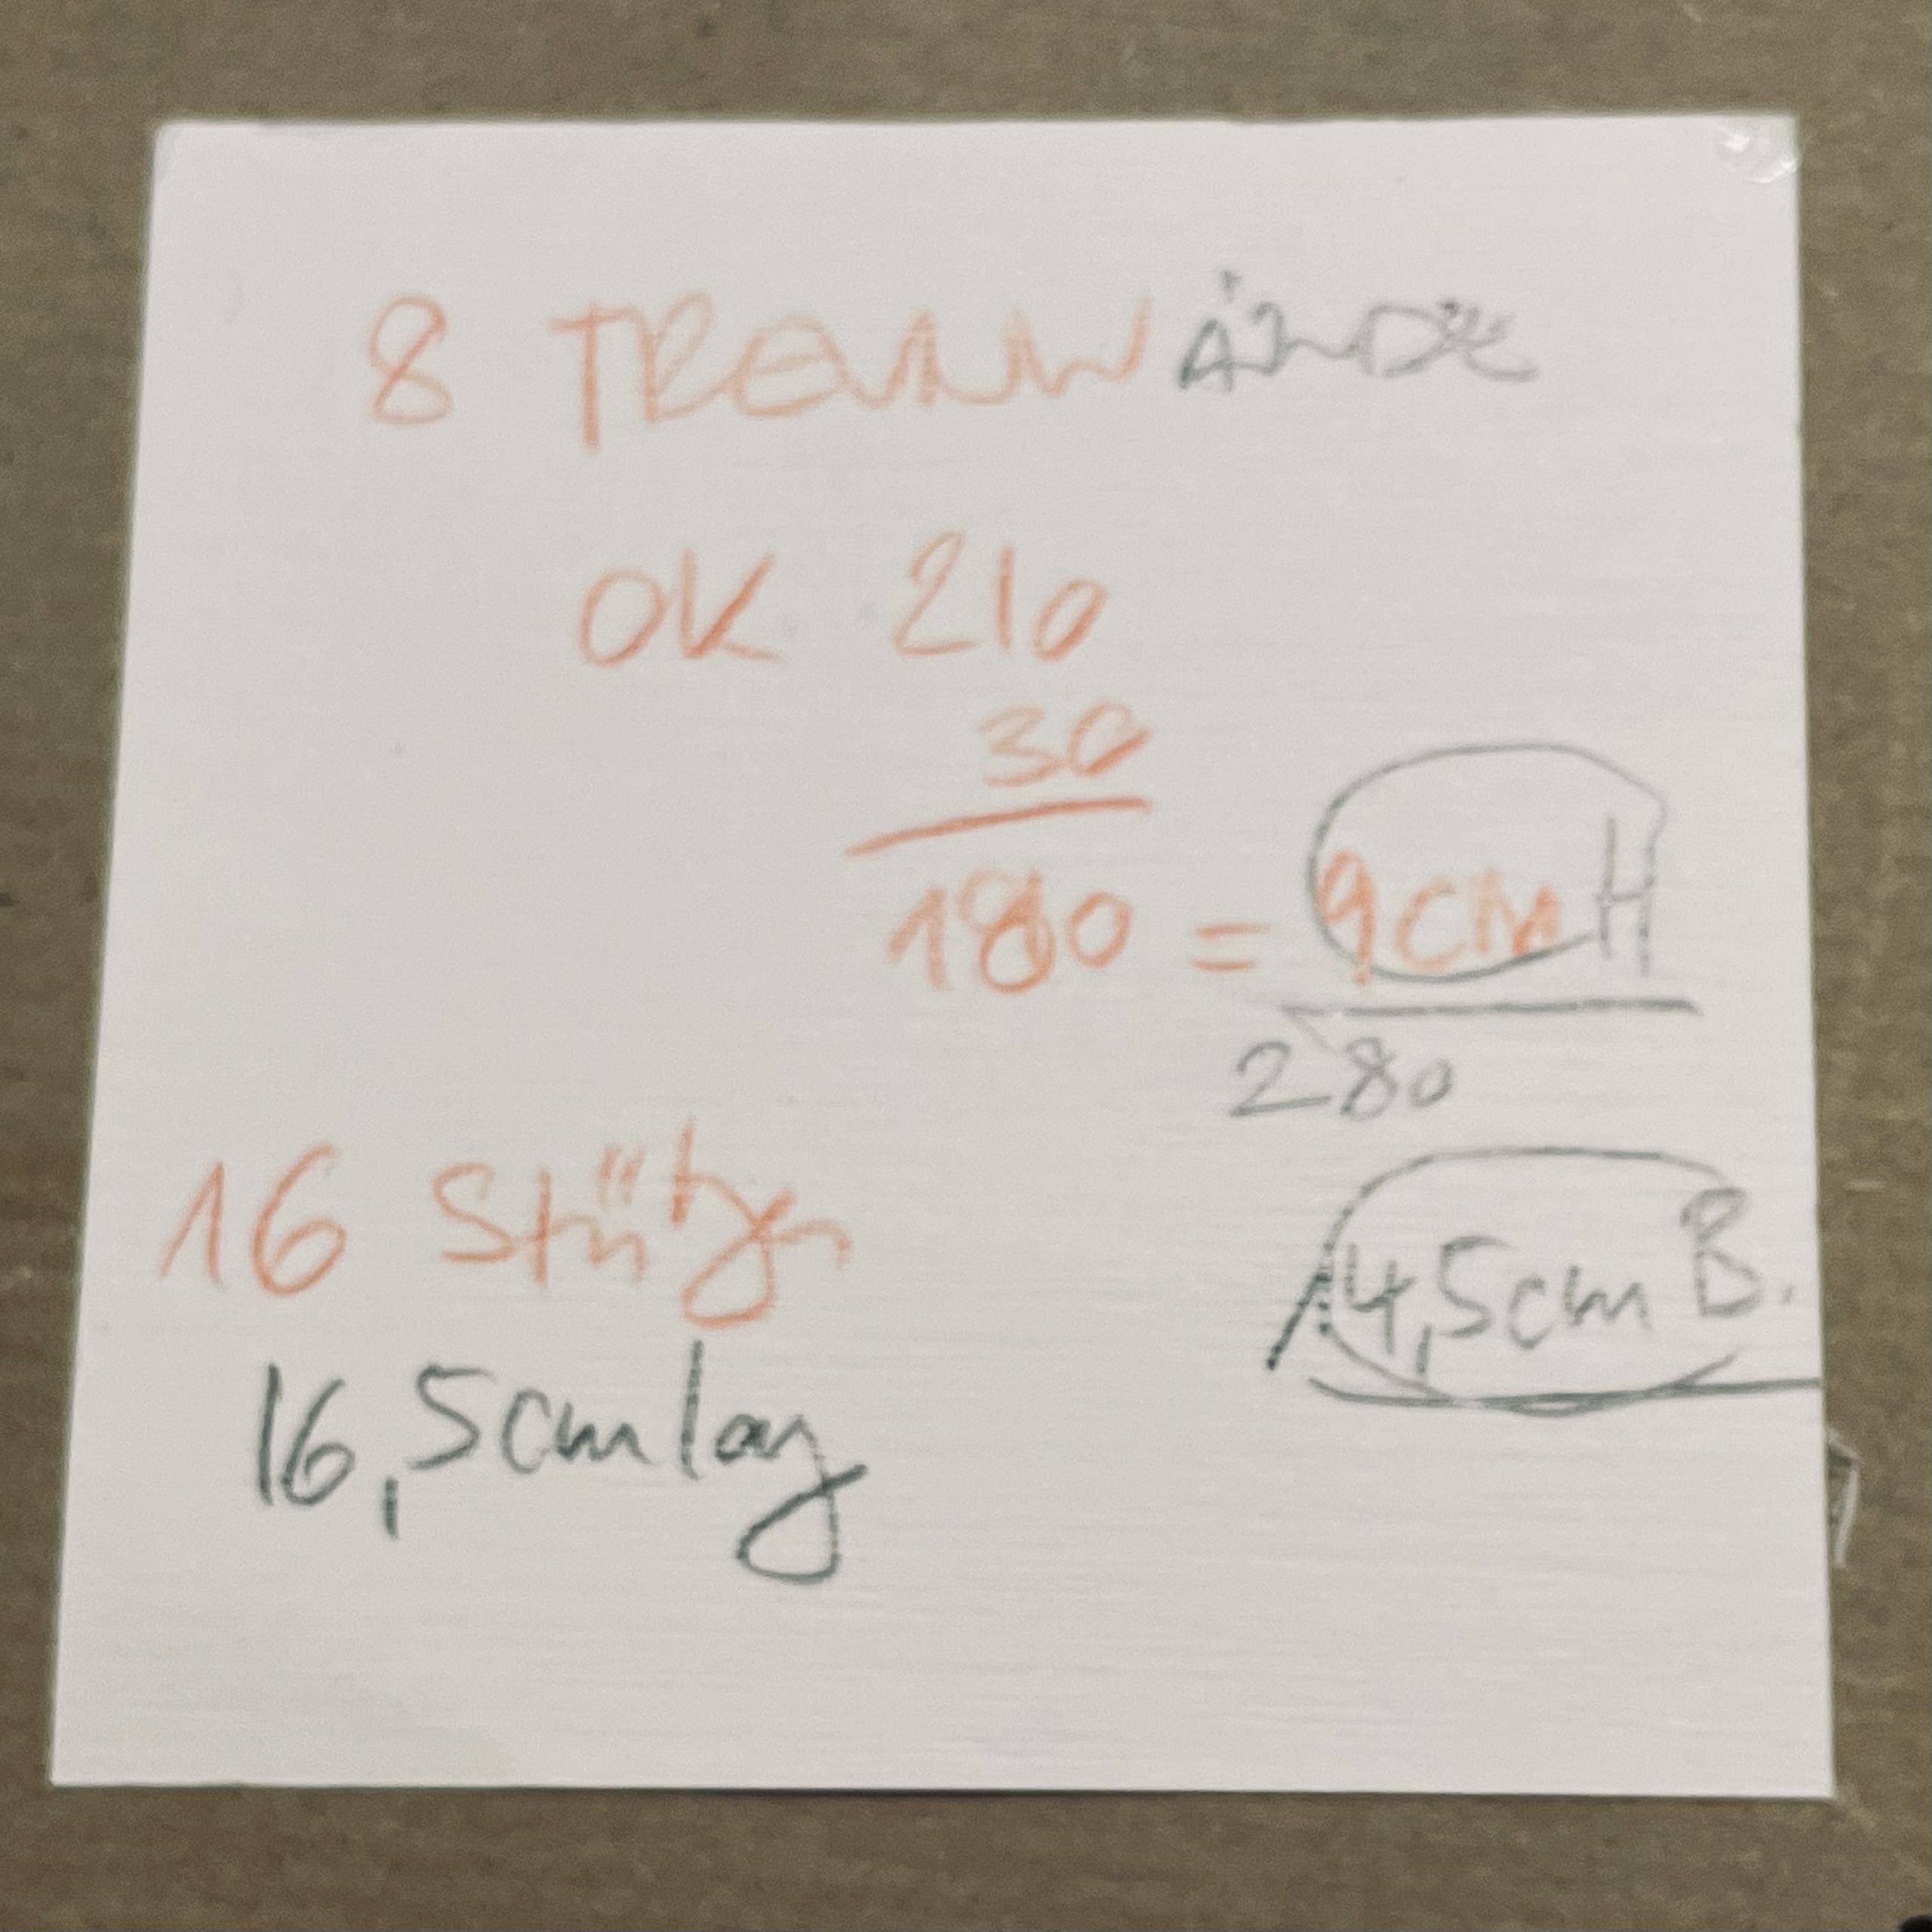 8 TRENNWÄNDE
OK 210
30
180 = 9CM H
280
16 Stützen
14,5cm B.
16,5cm lang